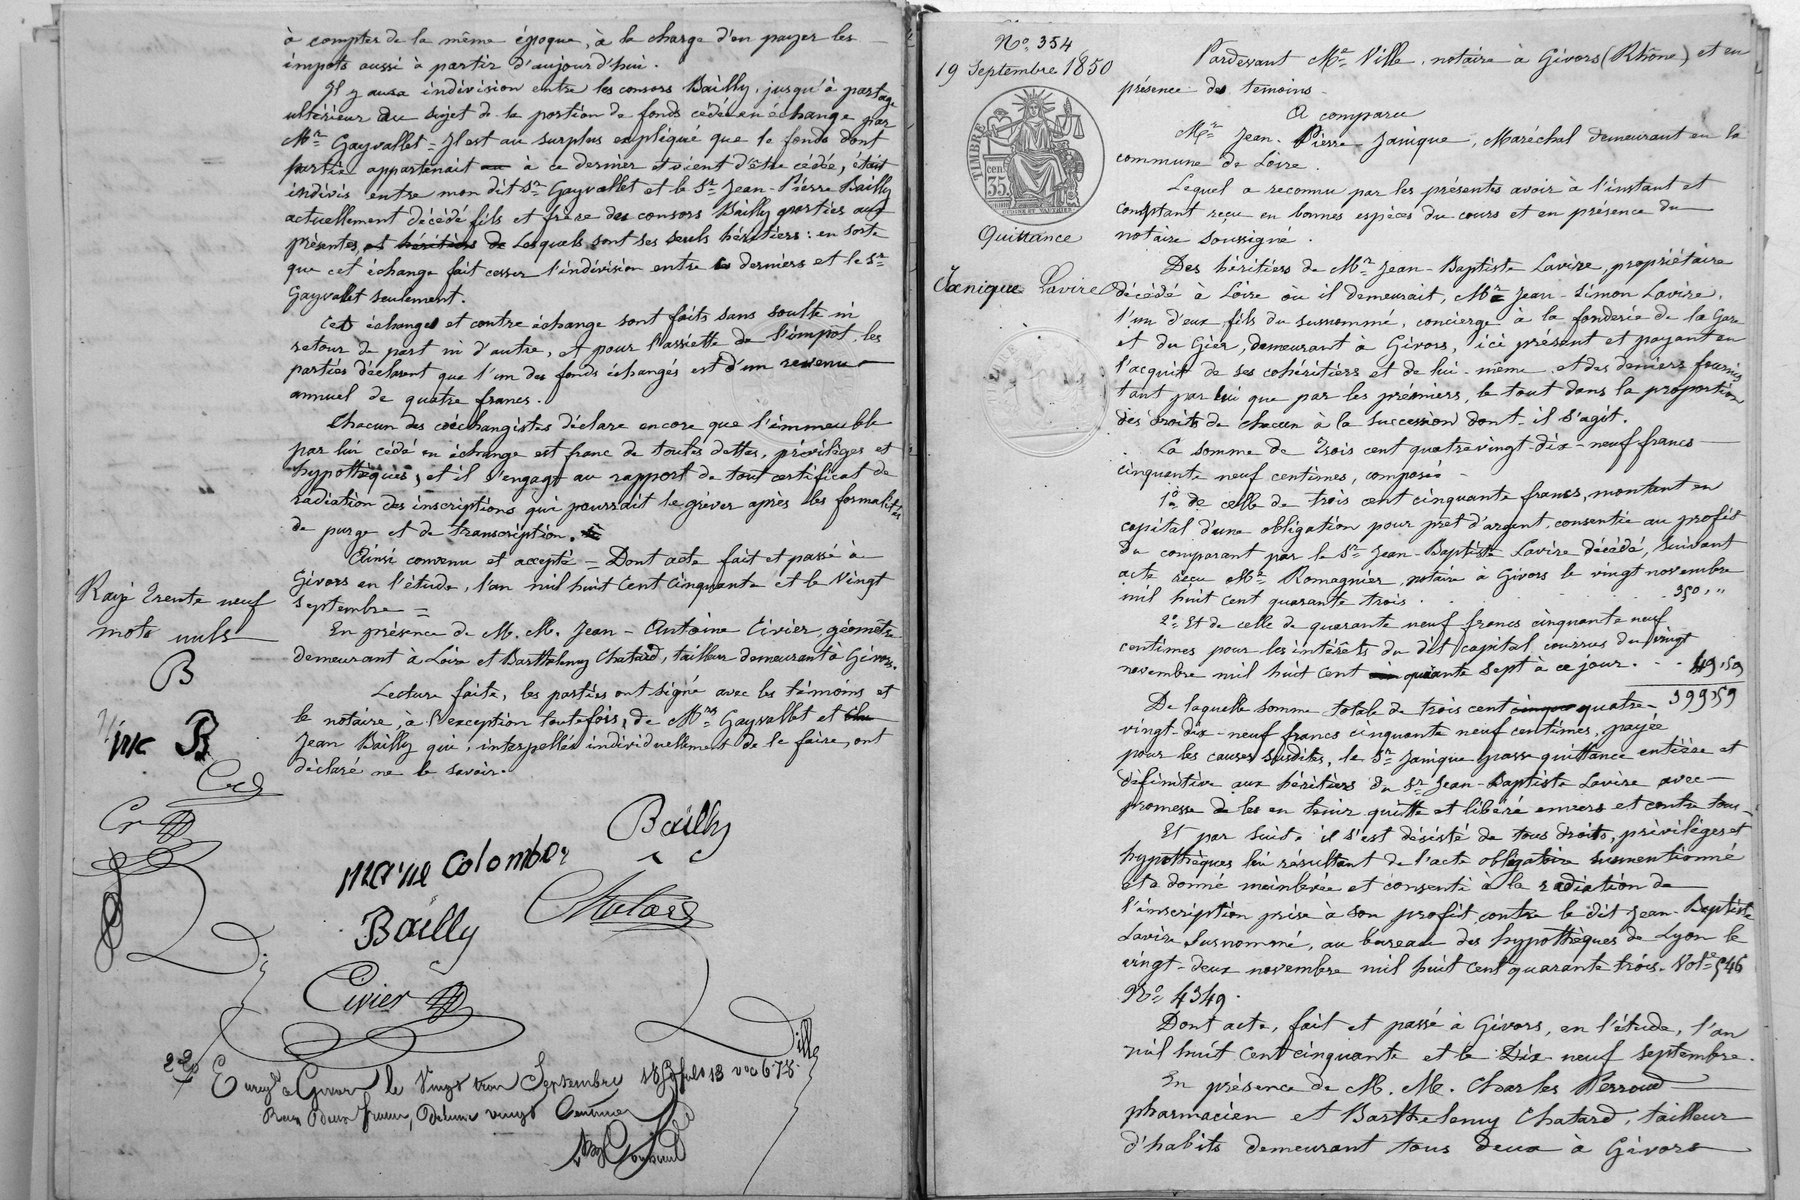 à compter de la même époque, à la charge d'en payer les
impots aussi à partir d'aujourd'hui.
Il y aura indivision entre les consors Bailly, jusqu'à partage
ultérieur au sujet de la portion de fonds cédée en échange par
Mr Gayvallet = Il est au surplus expliqué que le fonds dont
partie appartenait à ce dernier et vient d'être cédée, était
indivis entre mon dit Sr Gayvallet et le Sr Jean-Pierre Bailly
actuellement décédé fils et frère des consors Bailly parties aux
présentes, et héritiers de Lesquels sont ses seuls héritiers : en sorte
que cet échange fait cesser l'indivision entre ce derniers et le Sr
Gayvallet seulement.
Ces échanges et contre échange sont faits sans soulte ni
retour de part ni d'autre, et pour l'assiette de l'impot, les
parties déclarent que l'un des fonds échangés est d'un revenu
annuel de quatre francs.
Chacun des coéchangistes déclare encore que l'immeuble
par lui cédé en échange est franc de toutes dettes, privilèges et
hypothèques, et il s'engage au rapport de tout certificat de
radiation des inscriptions qui pourrait le grever après les formalités
de purge et de transcription.
Ainsi convenu et accepté = Dont acte fait et passé à
Givors en l'étude, l'an mil huit cent cinquante et le Vingt
septembre =
En présence de M. M. Jean-Antoine Civier, géomètre
demeurant à Loire et Barthelemy Chatard, tailleur demeurant à Givors.
Lecture faite, les parties ont signé avec les témoins et
le notaire, à l'exception toutefois, de Mrs Gayvallet et
Jean Bailly qui, interpellés individuellement de le faire, ont
déclaré ne le savoir.
Rayé trente neuf
mots nuls
B
mc B
Marie Colombier
Bailly
Bailly
Chatard
Civier
Ville
Enregé à Givors le Vingt trois Septembre 1850 folo 13 vo c 6 7 8.
Reçu Deux francs, Décime vingt Centimes
No 354
19 Septembre 1850
TIMBRE
35 cen.
Quittance
Janique Lavire
Pardevant Me Ville, notaire à Givors (Rhône) et en
présence des témoins
A comparu
Mr Jean-Pierre Janique, Maréchal demeurant en la
commune de Loire.
Lequel a reconnu par les présentes avoir à l'instant et
comptant reçu en bonnes espèces du cours et en présence du
notaire soussigné.
Des héritiers de Mr Jean-Baptiste Lavire, propriétaire
décédé à Loire où il demeurait, Mr Jean-Simon Lavire,
l'un d'eux, fils du susnommé, concierge à la fonderie de la Gare
et du Gier, demeurant à Givors, ici présent et payant en
l'acquit de ses cohéritiers et de lui-même et des deniers fournis
tant par lui que par les prémiers, le tout dans la proportion
des droits de chacun à la succession dont-il s'agit.
La somme de trois cent quatrevingt-dix-neuf francs
cinquante neuf centimes, composée
1o de celle de trois cent cinquante francs, montant en
capital d'une obligation pour prêt d'argent, consentie au profit
du comparant par le Sr Jean-Baptiste Lavire décédé, suivant
acte reçu Me Romagnier, notaire à Givors le vingt novembre
mil huit cent quarante trois . . . . . 350 , "
2o Et de celle de quarante neuf francs cinquante neuf
centimes pour les intérêts du dit capital courrus du vingt
novembre mil huit cent quarante sept à ce jour . . . 49,59
399,59
De laquelle somme totale de trois cent cinqua quatre-
vingt-dix-neuf francs cinquante neuf centimes, payée
pour les causes susdites, le Sr Janique passe quittance entière et
définitive aux héritiers du Sr Jean-Baptiste Lavire avec
promesse de les en tenir quitte et libéré envers et contre tous
Et par suite, il s'est désisté de tous droits, privilèges et
hypothèques lui résultant de l'acte obligatoire susmentionné
et a donné mainlevée et consenti à la radiation de
l'inscription prise à son profit, contre le dit Jean-Baptiste
Lavire susnommé, au bureau des hypothèques de Lyon le
vingt-deux novembre mil huit cent quarante trois. Vole 546
No 4349.
Dont acte, fait et passé à Givors, en l'étude, l'an
mil huit cent cinquante et le Dix neuf septembre.
En présence de M. M. Charles Perroud
pharmacien et Barthelemy Chatard, tailleur
d'habits demeurant tous deux à Givors